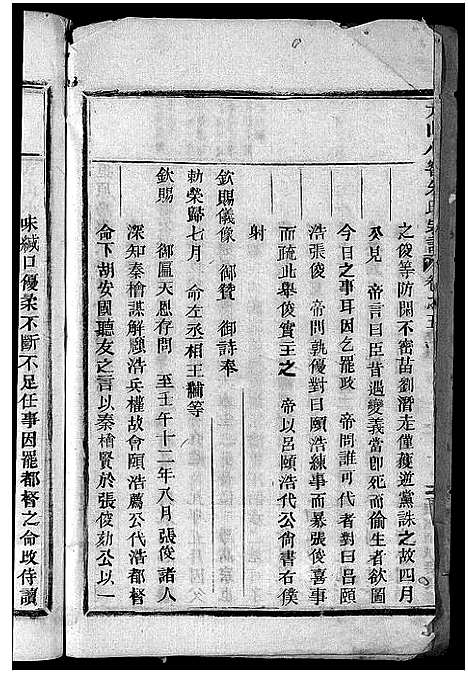 之俊等防閑不密苗劉潛走僅獲逆黨誅之故四月
入見　帝言曰臣昔遇變義當即死而偷生者欲圖
今日之事耳因乞罷政　帝問誰可代者對曰呂頤
浩張俊　帝問孰優對曰頤浩練事而暴張俊喜事
而疏此舉俊實主之　帝以呂頤浩代公尙書右僕
射
欽賜儀像　御贊　御詩奉
勅榮歸七月　命左丞相王黼等
欽賜　御匾天恩存問　至壬午十二年八月張俊諸人
深知秦檜謀解頤浩兵權故會頤浩薦公代浩都督
命下胡安國聽友之言以秦檜賢於張俊劾公以一
味緘口優柔不斷不足任事因罷都督之命改侍讀